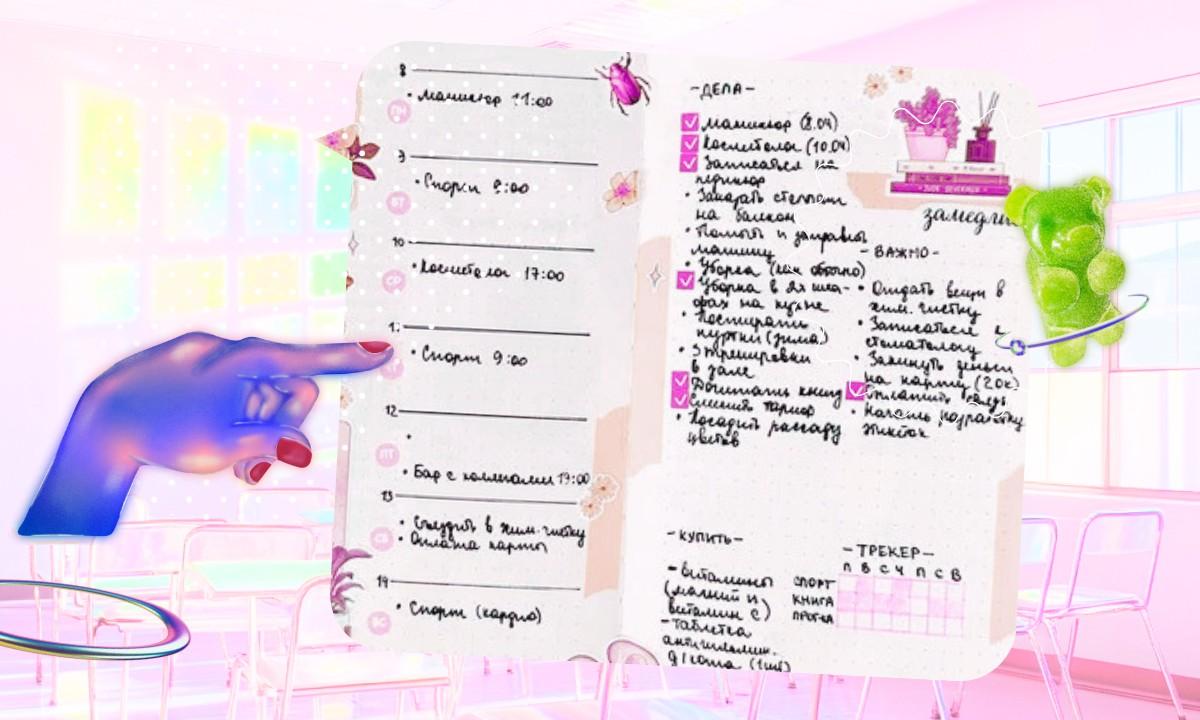 8
• Маникюр 11:00
ПН
9
• Спорт 9:00
ВТ
10
• Косметолог 17:00
СР
11
• Спорт 9:00
12
•
ПТ
• Бар с коллегами 19:00
13
• Съездить в хим. чистку
СБ
• Оплата карты
14
• Спорт (кардио)
ВС
-ДЕЛА-
Маникюр (8.04)
Косметолог (10.04)
Записаться на
педикюр
• Заказать стеллажи
на балкон
• Помыть и заправить
машину
• Уборка (как обычно)
Уборка в 2х шка-
фах на кухне
• Постирать
куртки (зима)
• 3 тренировки
в зале
Дочитать книгу
• Посадить рассаду
цветов
замедли
-ВАЖНО-
• Отдать вещи в
хим. чистку
• Записаться к
стоматологу
• Закинуть деньги
на карту (20к)
Оплатить
• Начать
-КУПИТЬ-
-Витамины
(магний и
витамин С)
-Таблетка
антигельмин.
д/кота (1шт)
-ТРЕКЕР-
П В С Ч П С В
СПОРТ
КНИГА
ПРОГ-КА